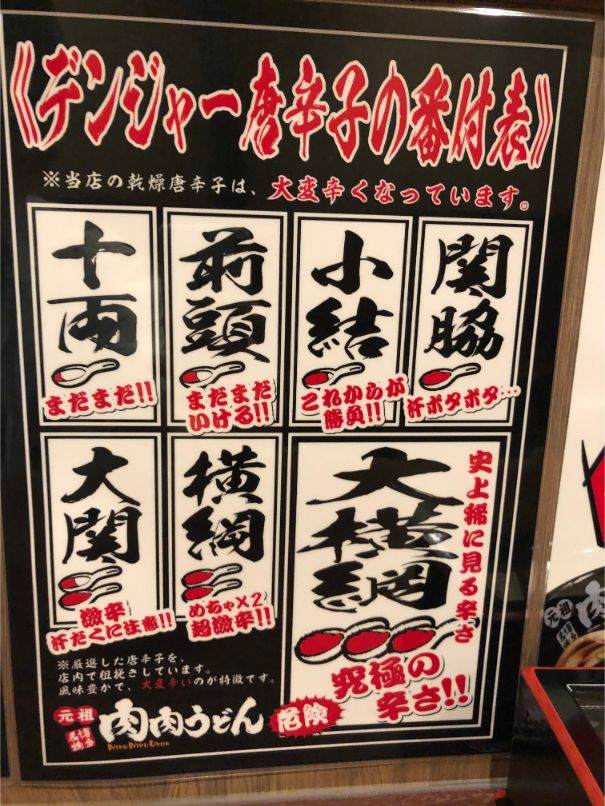 《デンジャー唐辛子の番付表》
※当店の乾燥唐辛子は、大変辛くなっています。
十両
まだまだ!!
前頭
まだまだ
いける!!
小結
これからが
勝負!!
関脇
汗ポタポタ…
大関
激辛
汗だくに注意!!
横綱
めちゃ×2
超激辛!!
大横綱
史上稀に見る辛さ
究極の
辛さ!!
※厳選した唐辛子を、
店内で粗挽きしています。
風味豊かで、大変辛いのが特徴です。
元祖
肉肉うどん
危険
元祖
肉